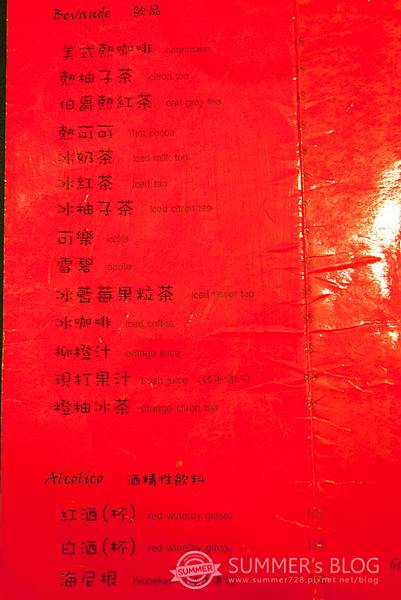 Bevande 飲品
美式熱咖啡 americano
熱柚子茶 citron tea
伯爵熱紅茶 earl grey tea
熱可可 hot cocoa
冰奶茶 iced milk tea
冰紅茶 iced tea
冰柚子茶 iced citron tea
可樂 cola
雪碧 sprite
冰藍莓果粒茶 iced flavor tea
冰咖啡 iced coffee
柳橙汁 orange juice
現打果汁 fresh juice
橙柚冰茶 orange citron tea
Alcolico 酒精性飲料
紅酒(杯) red wine(by glass)
白酒(杯) red wine(by glass)
海尼根 heineken
SUMMER
SUMMER's BLOG
www.summer728.pixnet.net/blog